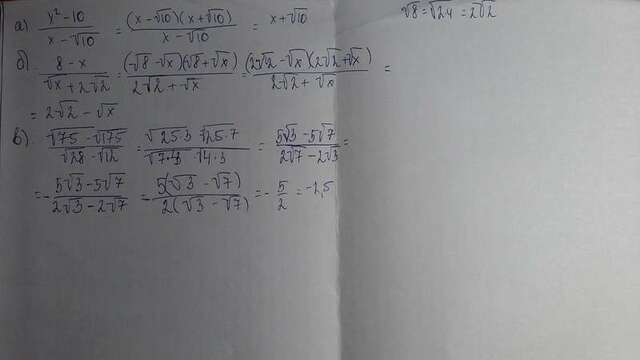 а) (x²-10)/(x-√10) = ((x-√10)(x+√10))/(x-√10) = x+√10
√8=√2·4=2√2
б) (8-x)/(√x+2√2) = ((√8-√x)(√8+√x))/(2√2+√x) = ((2√2-√x)(2√2+√x))/(2√2+√x) =
= 2√2-√x
в) (√75-√175)/(√28-√12) = (√25·3-√25·7)/(√7·4-√4·3) = (5√3-5√7)/(2√7-2√3) =
=-(5√3-5√7)/(2√3-2√7) = -(5(√3-√7))/(2(√3-√7)) = -5/2 = -2,5